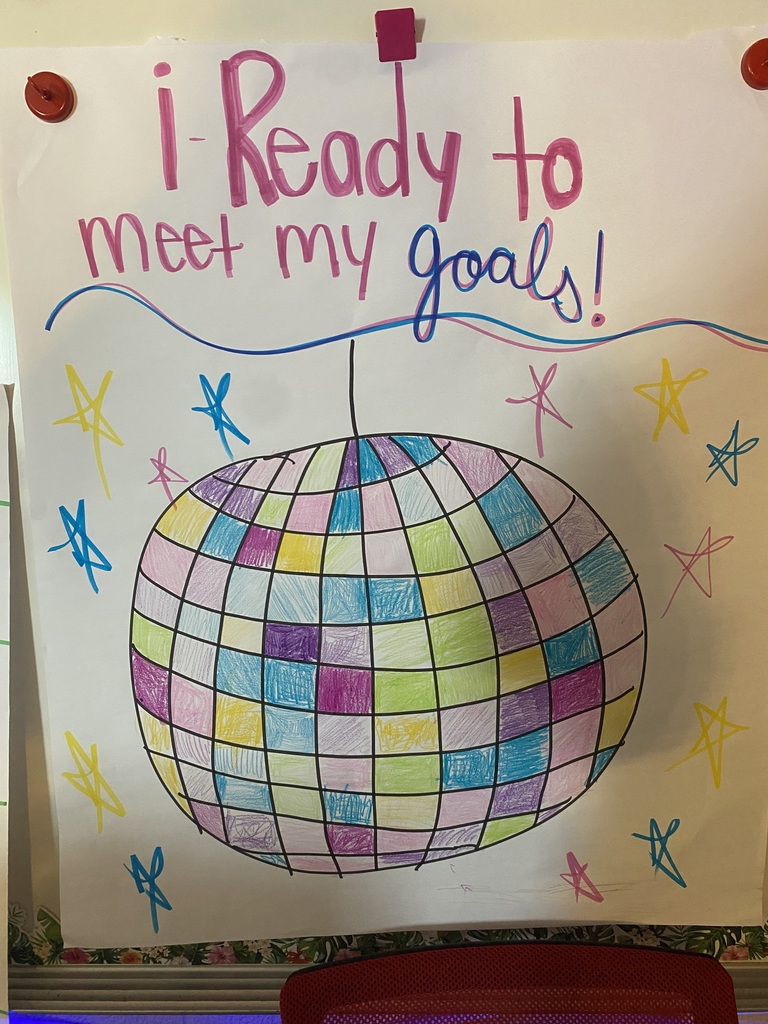 i-Ready to
meet my goals!